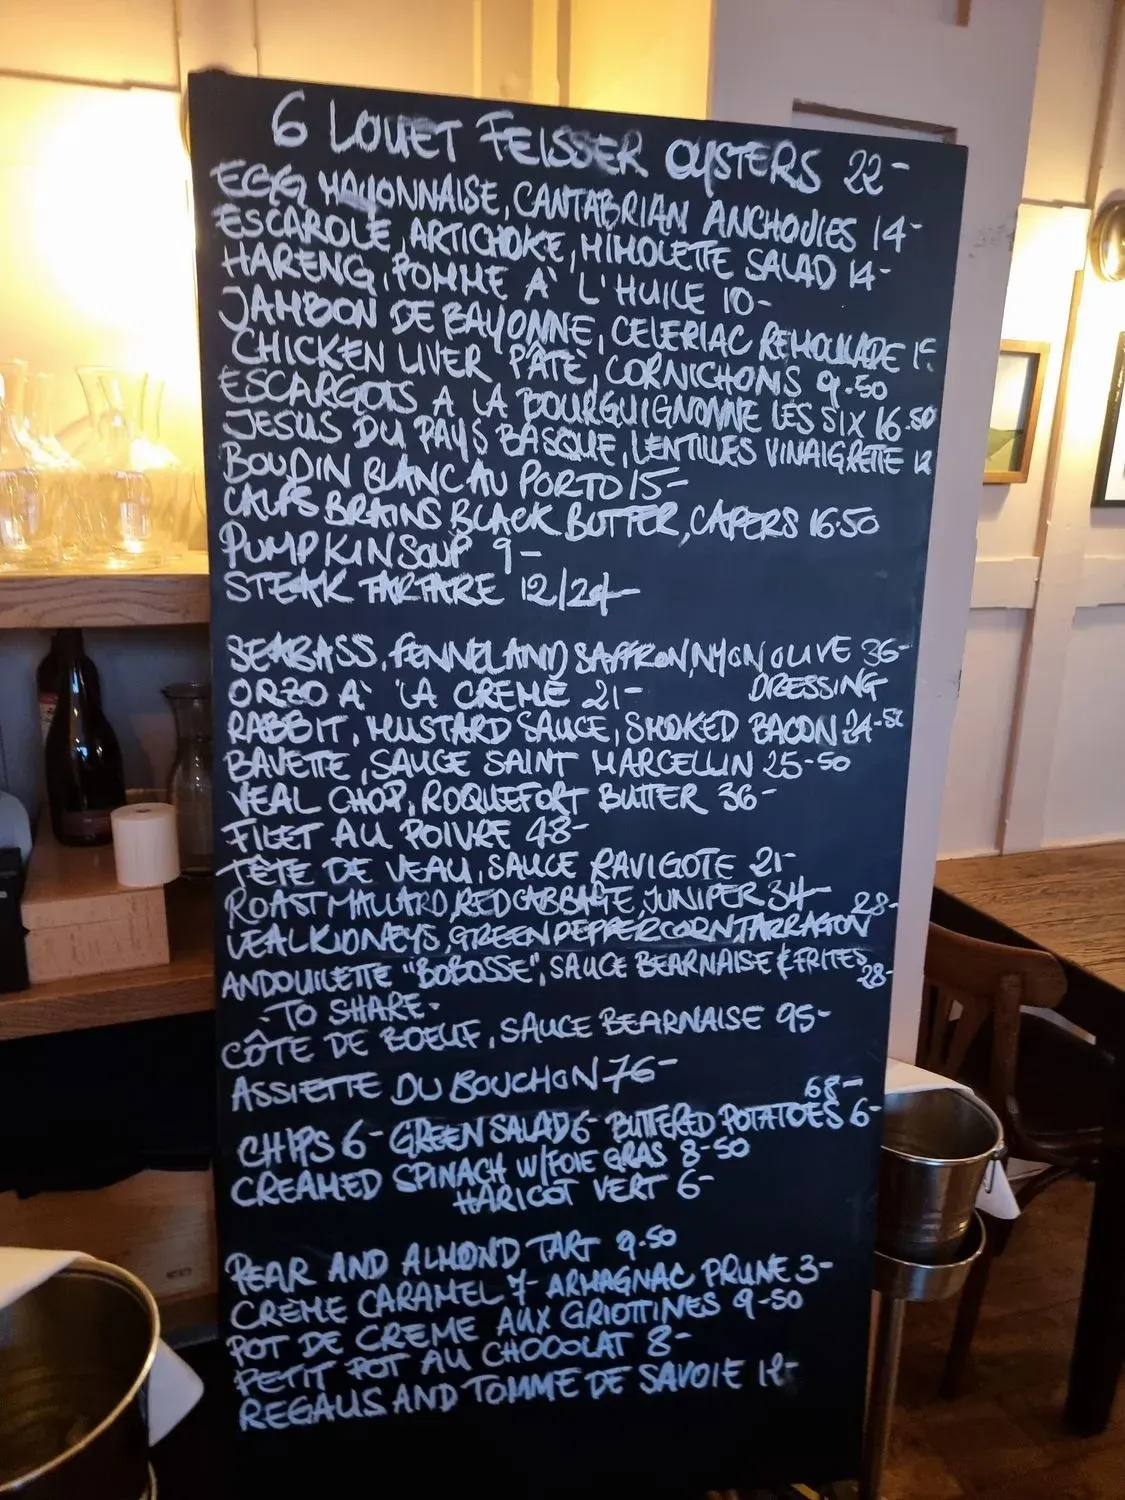 6 LOUET FEISSER OYSTERS 22-
EGG MAYONNAISE, CANTABRIAN ANCHOVIES 14-
ESCAROLE, ARTICHOKE, MIMOLETTE SALAD 14-
HARENG, POMME À L'HUILE 10-
JAMBON DE BAYONNE, CELERIAC REMOULADE
CHICKEN LIVER PÂTÉ, CORNICHONS 9.50
ESCARGOTS A LA BOURGUIGNONNE LES SIX 16.50
JESUS DU PAYS BASQUE, LENTILLES VINAIGRETTE 12
BOUDIN BLANC AU PORTO 15-
CALFS BRAINS BLACK BUTTER, CAPERS 16.50
PUMPKIN SOUP 9-
STEAK TARTARE 12/24-
SEABASS, FENNEL AND SAFFRON, NYON OLIVE 36-
DRESSING
ORZO A LA CREME 21-
RABBIT, MUSTARD SAUCE, SMOKED BACON 24-50
BAVETTE, SAUCE SAINT MARCELLIN 25-50
VEAL CHOP, ROQUEFORT BUTTER 36-
FILET AU POIVRE 48-
TÊTE DE VEAU, SAUCE RAVIGOTE 21-
ROAST MALLARD, RED CABBAGE, JUNIPER 34-
VEAL KIDNEYS, GREEN PEPPERCORN, TARRAGON 28-
ANDOUILETTE "BOBOSSE", SAUCE BEARNAISE & FRITES 28-
- TO SHARE -
CÔTE DE BOEUF, SAUCE BEARNAISE 95-
ASSIETTE DU BOUCHON 76-
68-
CHIPS 6- GREEN SALAD 6- BUTTERED POTATOES 6-
CREAMED SPINACH W/FOIE GRAS 8-50
HARICOT VERT 6-
PEAR AND ALMOND TART 9.50
CRÈME CARAMEL 7- ARMAGNAC PRUNE 3-
POT DE CREME AUX GRIOTTINES 9-50
PETIT POT AU CHOCOLAT 8-
REGALIS AND TOMME DE SAVOIE